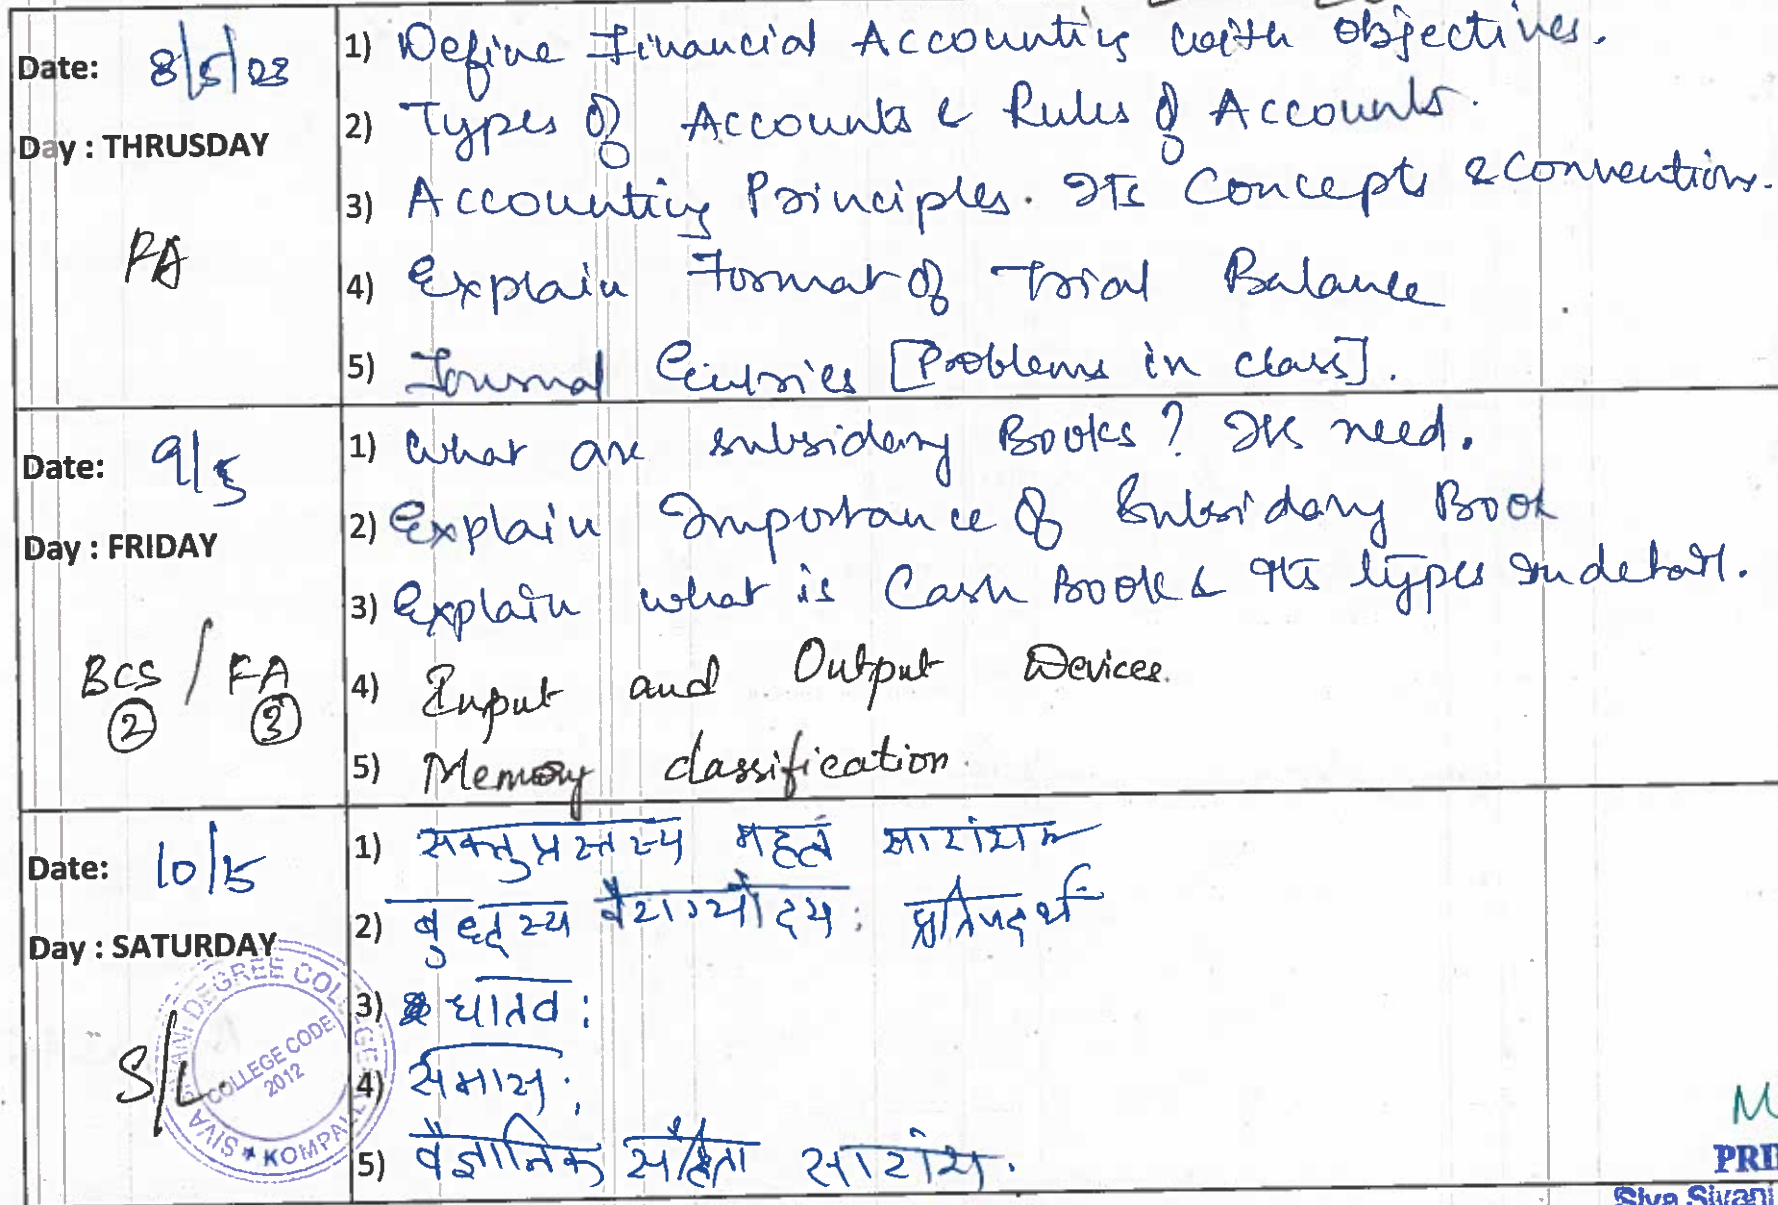 Date: 8/5/23
Day : THRUSDAY
FA
1) Define Financial Accounting with objectives.
2) Types of Accounts & Rules of Accounts.
3) Accounting Principles. Its Concepts & Conventions.
4) Explain Format of Trial Balance
5) Journal Entries [Problems in class].
Date: 9/5
Day : FRIDAY
BCS / FA
2 3
1) What are subsidary Books? Its need.
2) Explain Importance of Subsidary Book
3) Explain what is Cash Book & Its types in detail.
4) Input and Output Devices.
5) Memory classification.
Date: 10/5
Day : SATURDAY
S/L.
1) सक्तुप्रस्तस्य महत्वं सारांशम
2) बुद्धस्य वैराग्योदय: प्रतिपदर्थ
3) धातव:
4) समास:
5) वैज्ञानिक संहिता सारांश.
DEGREE COLLEGE
COLLEGE CODE
2012
Siva Sivani